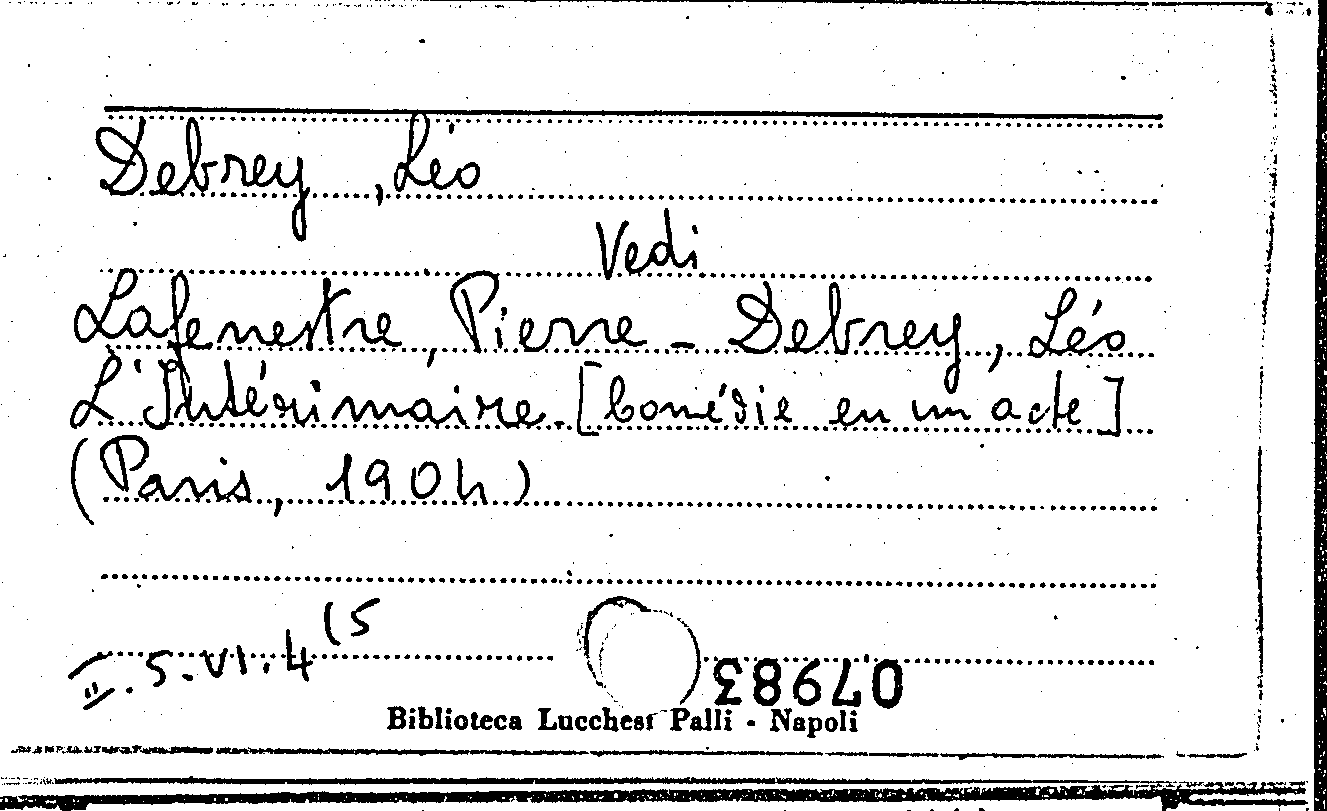 Debrey, Léo
Vedi
Lafenestre, Pierre - Debrey, Léo
L'Intérimaire. [Comédie en un acte]
(Paris, 1904)
II. 5. VI. 4 (5
07983
Biblioteca Lucchesi Palli - Napoli